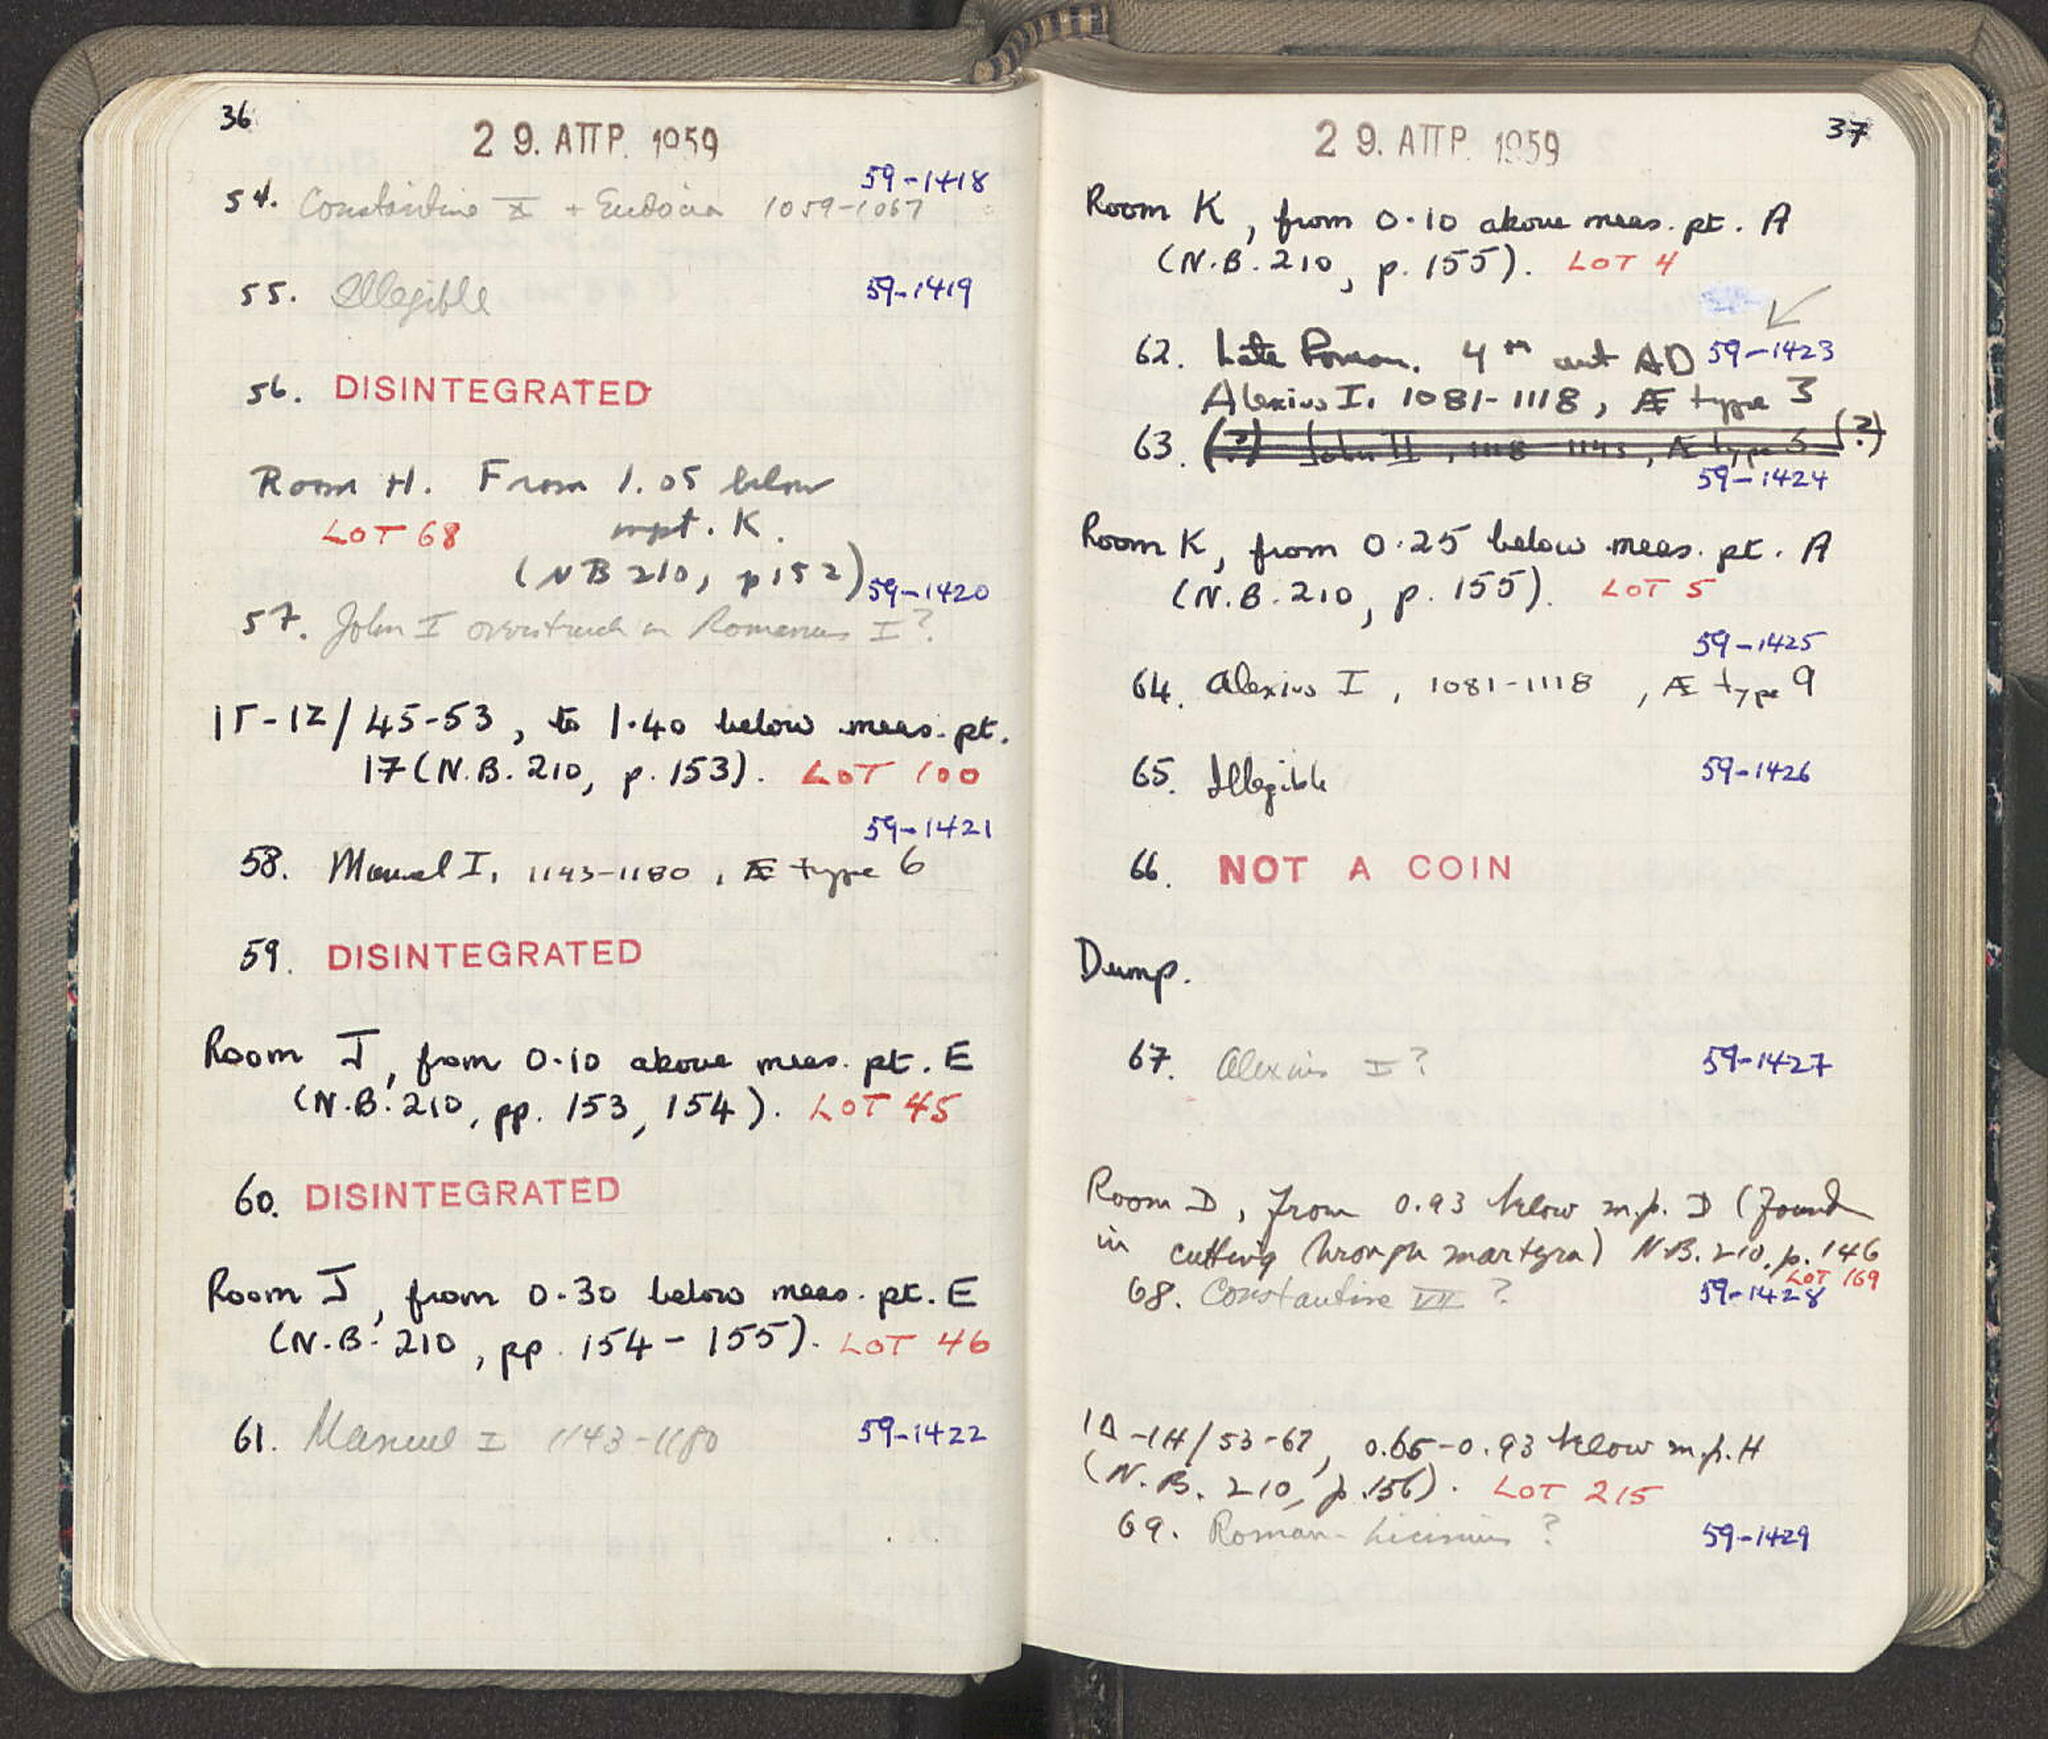 36
29. ΑΠΡ. 1959
59-1418
54. Constantine X + Eudocia 1059-1067
55. Illegible 59-1419
56. DISINTEGRATED
Room H. From 1.05 below
LOT 68 mpt. K.
(NB 210, p 152) 59-1420
57. John I overstruck on Romanus I?
15-12/45-53, to 1.40 below meas. pt.
17 (N.B. 210, p. 153). LOT 100
59-1421
58. Manuel I, 1143-1180, Æ type 6
59. DISINTEGRATED
Room J, from 0.10 above meas. pt. E
(N.B. 210, pp. 153, 154). LOT 45
60. DISINTEGRATED
Room J, from 0.30 below meas. pt. E
(N.B. 210, pp. 154-155). LOT 46
61. Manuel I 1143-1180 59-1422
37
29. ΑΠΡ. 1959
Room K, from 0.10 above meas. pt. A
(N.B. 210, p. 155). LOT 4
62. Late Roman. 4th cent AD 59-1423
Alexius I, 1081-1118, Æ type 3
63. (?) John II, 1118-1143, Æ type 3 (?)
59-1424
Room K, from 0.25 below meas. pt. A
(N.B. 210, p. 155). LOT 5
59-1425
64. Alexius I, 1081-1118, Æ type 9
65. Illegible 59-1426
66. NOT A COIN
Dump.
67. Alexius I? 59-1427
Room D, from 0.93 below m.p. D (found
in cutting through martyra) N.B. 210, p. 146
LOT 169
68. Constantine VII? 59-1428
ΙΔ-ΙΗ/53-67, 0.65-0.93 below m.p. H
(N.B. 210, p. 156). LOT 215
69. Roman - Licinius? 59-1429